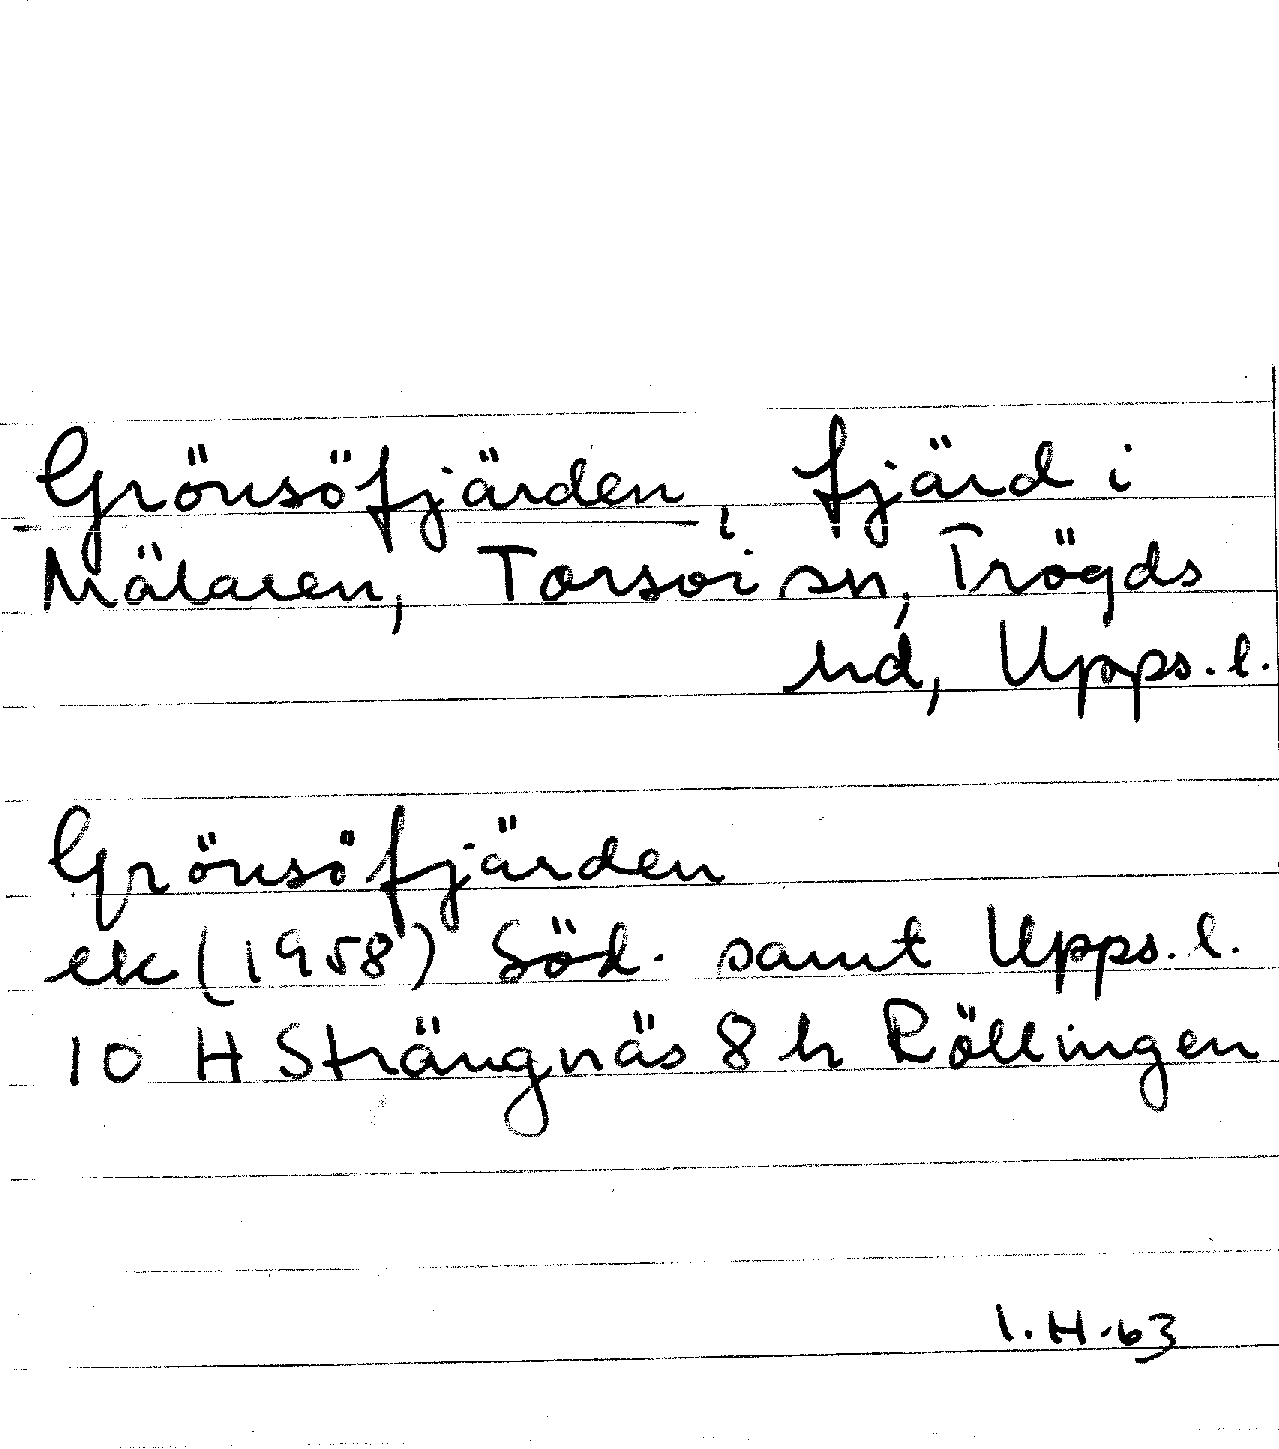 Grönsöfjärden, fjärd i
Mälaren, Torsvi sn, Trögds
hd, Upps. l.
Grönsöfjärden
ek (1958) Söd. samt Upps. l.
10 H Strängnäs 8 h Röllingen
I.H. 63